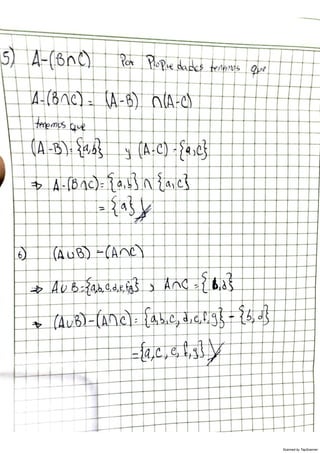 5) A-(B∩C) Por Propiedades tenemos que
A-(B∩C) = (A-B) ∩(A-C)
tenemos que
(A-B)={a,b} y (A-C)={a,c}
⇒ A-(B∩C)={a,b}∩{a,c}
={a}
6) (A∪B)-(A∩C)
⇒ A∪B={a,b,c,d,e,f,g} y A∩C={b,d}
⇒ (A∪B)-(A∩C)={a,b,c,d,e,f,g}-{b,d}
={a,c,e,f,g}
Scanned by TapScanner